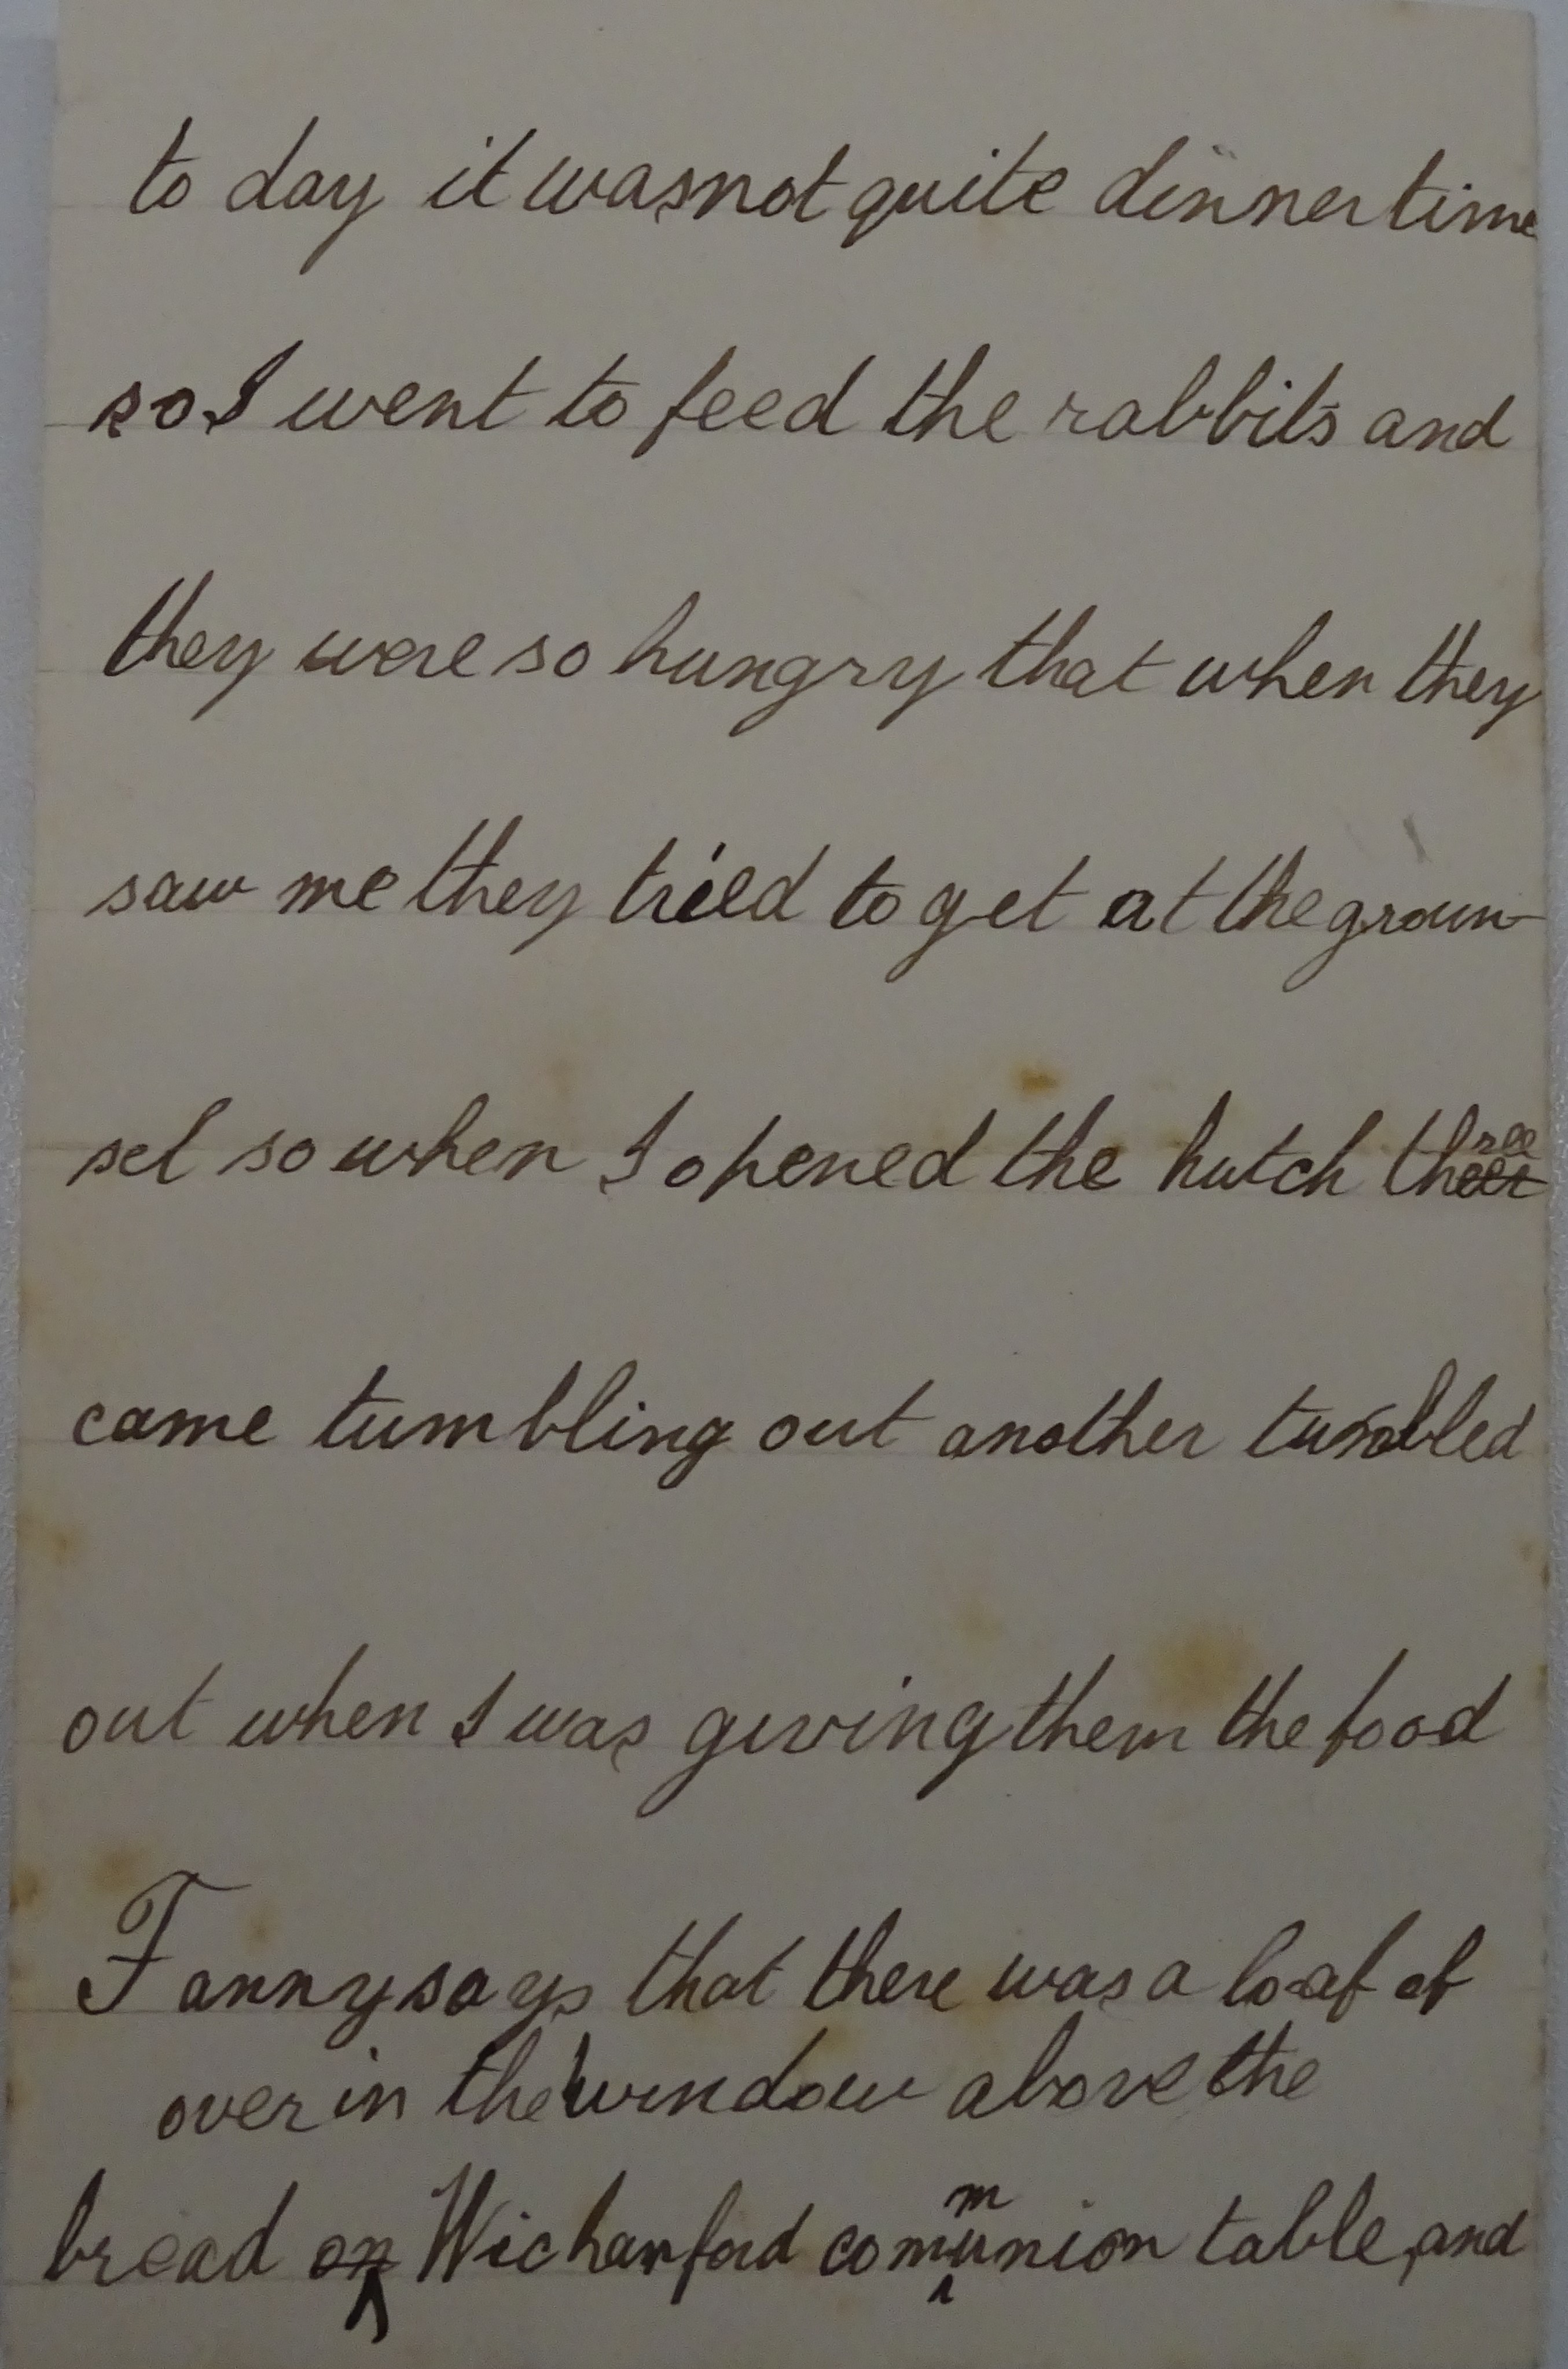 to day it was not quite dinner time
so I went to feed the rabbits and
they were so hungry that when they
saw me they tried to get at the groun-
sel so when I opened the hutch three
came tumbling out another tumbled
out when I was giving them the food
Fanny says that there was a loaf of
over in the window above the
bread on Wichanford communion table, and